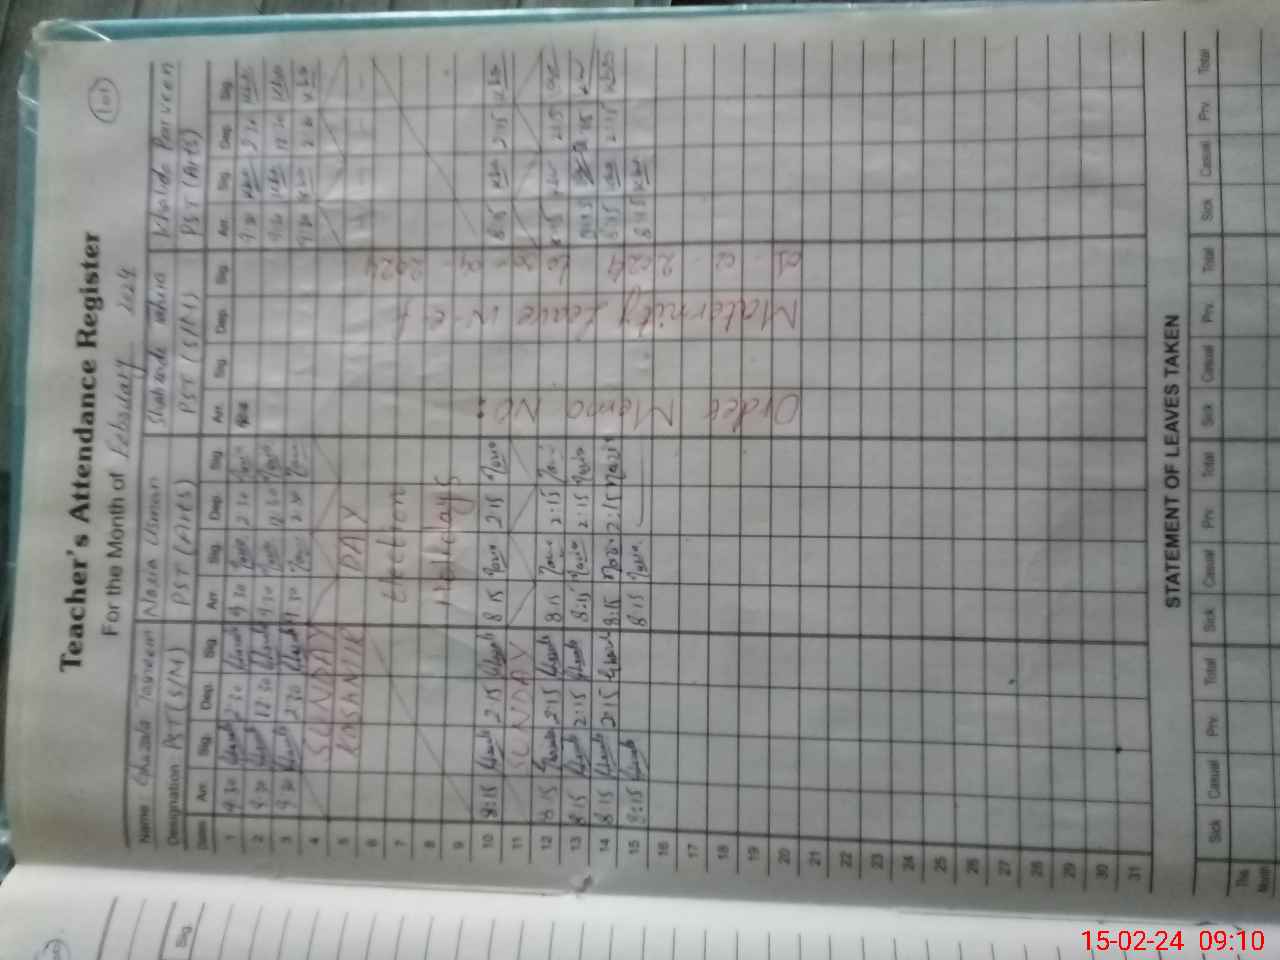 (101)
Teacher's Attendance Register
For the Month of Febuary 2024
Name Ghazala Tasneem Nazia Usman Shahzada Khalida Parveen
Designation PST (S/M) PST (Arts) PST (S/M) PST (Arts)
Date Arr. Sig. Dep. Sig. Arr. Sig. Dep. Sig. Arr. Sig. Dep. Sig. Arr. Sig. Dep. Sig.
1 9.30 2:30 9.30 2.30 9.30 2.30
2 9.30 12:30 9.30 12.30 9.30 12.30
3 9.30 2.30 9.30 2.30 9.30 2.30
4 SUNDAY
5 KASHMIR DAY
6
7 Election
8
9 Holidays
10 8:15 2:15 8:15 2:15 8:15 2:15
11 SUNDAY
12 8:15 2:15 8:15 2:15 8:45 2:15
13 8:15 2:15 8:15 2:15
14 8:15 2:15 8:15 2:15 8:45 2:15
15 8:15 8:15 8:45
16
17
18
19
20
21
22
23
24
25
26
27
28
29
30
31
Order Memo NO:
Maternity Leave w-e-f
2024
2024
STATEMENT OF LEAVES TAKEN
Sick Casual Prv. Total Sick Casual Prv. Total Sick Casual Prv. Total Sick Casual Prv. Total
This
Month
Sig.
15-02-24 09:10